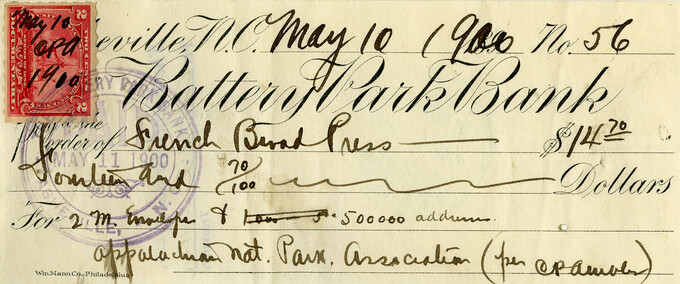 May 10
CPA
1900
eville, N.C. May 10 1900 No. 56
Battery Park Bank
Pay to the
order of French Broad Press $14 70
MAY 11 1900
Fourteen and 70/100 Dollars
For 2 M. Envelopes & 500000 address
Appalachian Nat. Park. Association (per CP Ambler)
Wm. Mann Co., Philadelphia